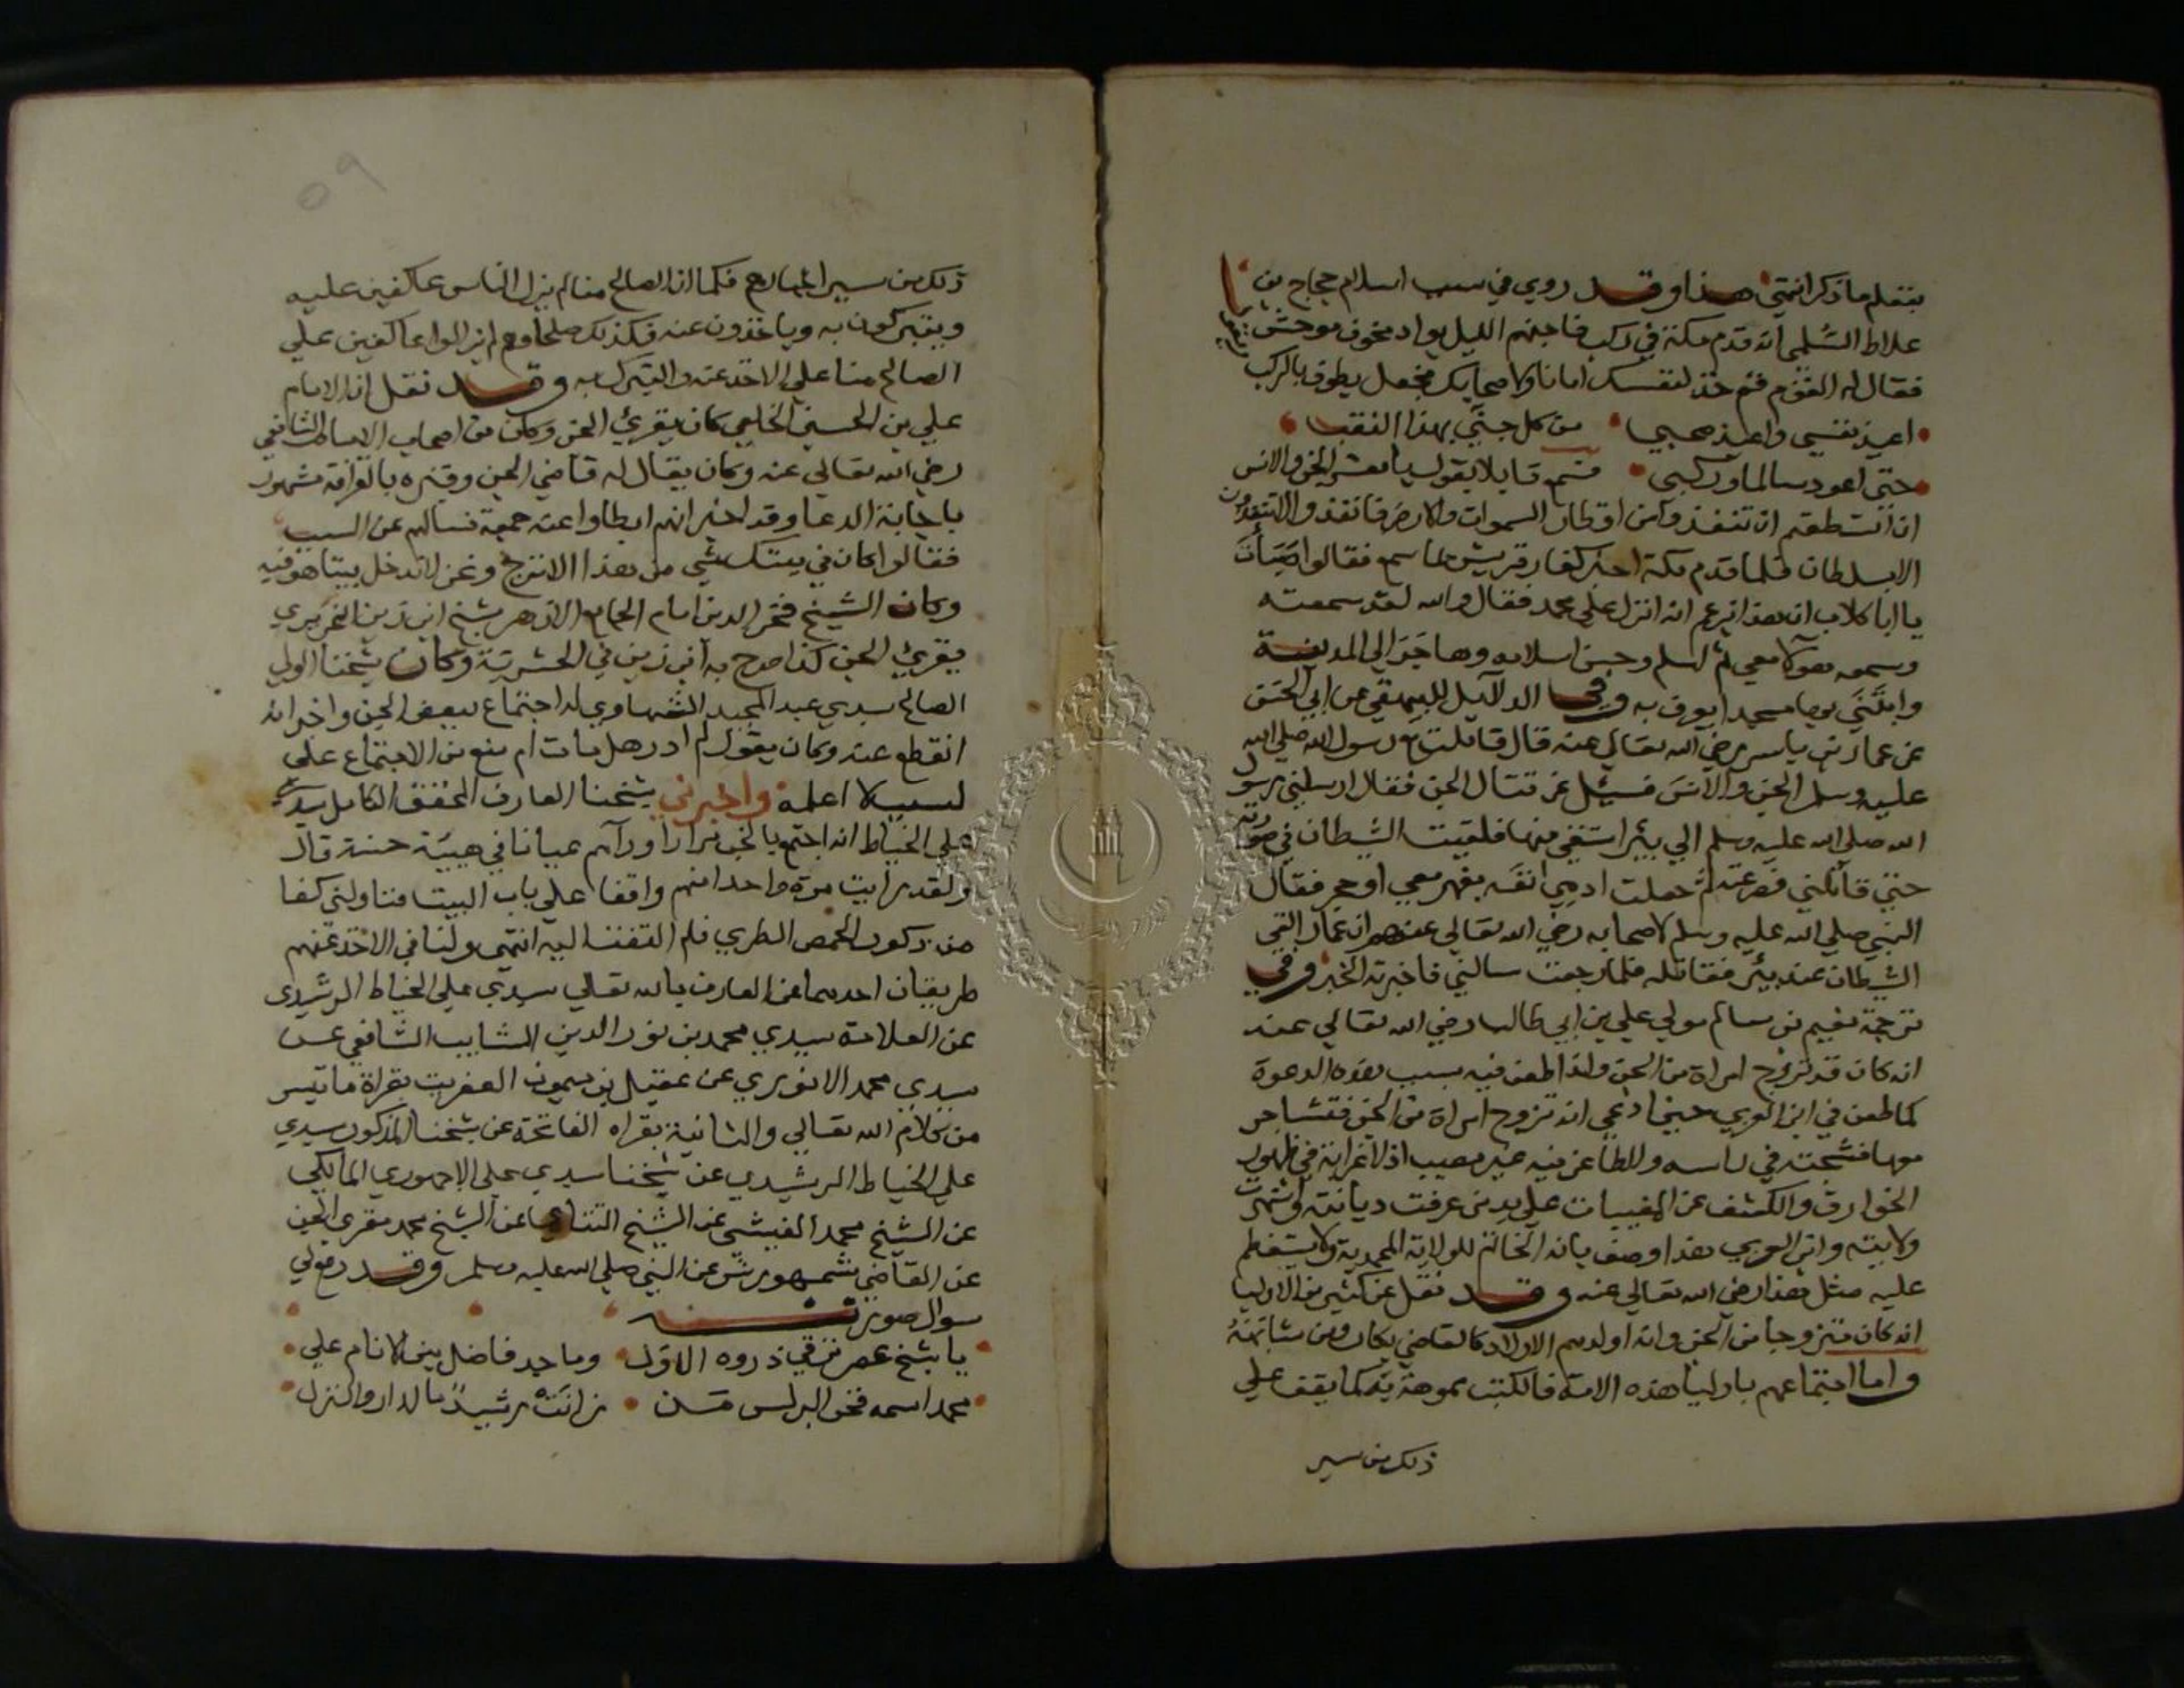 بنقلم ما ذكر انتهي هذا وقد روي في سبب اسلام حجاج بن
علاط السلمي انه قدم مكة في ركب فاجنهم الليل بواد مخوف موحش
فقال له القوم قم خذ لنفسك امانا ولاصحابك فجعل يطوف بالركب
اعيذ نفسي واعيذ صحبي من كل جني بهذا النقب
حتي اعود سالما وركبي فسمع قايلا يقول يا معشر الجن والانس
ان استطعتم ان تنفذوا من اقطار السموات والارض فانفذوا لا تنفذون
الا بسلطان فلما قدم مكة اخبر كفار قريش بما سمع فقالوا صبأت
يا ابا كلاب ان هذا يزعم انه انزل علي محمد فقال والله لقد سمعته
وسمعه هولآ معي ثم اسلم وحسن اسلامه وهاجر الي المدينة
وابتني بها مسجدا يعرف به وفي الدلآيل للبيهقي عن ابي الحسن
عن عمار بن ياسر رضي الله تعالي عنه قال قاتلت مع رسول الله صلي الله
عليه وسلم الجن والانس فسيل عن قتال الجن فقال ارسلني رسول
الله صلي الله عليه وسلم الي بئر استقي منها فلقيت الشيطان في صورته
حتي قاتلني فصرعته ثم جعلت ادمي انفه بفهر معي او حجر فقال
النبي صلي الله عليه وسلم لاصحابه رضي الله تعالي عنهم ان عمار القي
الشيطان عند بئر فقاتله فلما رجعت سالني فاخبرته الخبر وفي
ترجمة نعيم بن سالم مولي علي بن ابي طالب رضي الله تعالي عنه
انه كان قد تزوج امراة من الجن ولذا طعن فيه بسبب هذه الدعوة
كما طعن في ابن العربي حين ادعي انه تزوج امراة من الجن فتشاجر
معها فشجته في راسه والطاعن فيه غير مصيب اذ لا غرابة في ظهور
الخوارق والكشف عن المغيبات علي يد من عرفت ديانته واشتهرت
ولايته وابن العربي هذا وصف بانه الخاتم للولاية المحمدية ولا يستعظم
عليه مثل هذا رضي الله تعالي عنه وقد نقل عن كثير من الاوليا
انه كان متزوجا من الجن وانه اولدهم الاولاد كالقاضي بكار ومن شابهه
واما اجتماعهم باوليا هذه الامة فالكتب مموهة به كما يقف علي
ذلك من سير
٥٩
ذلك من سير فكما ان الصالح منا لم يزل الناس عاكفين عليه
ويتبركون به وياخذون عنه فكذلك صلحاوهم لم يزالوا عاكفين علي
الصالح منا علي الاخذ عنه والتبرك به وقد نقل ان الامام
علي بن الحسين الخلعي كان يقرئ الجن وكان من اصحاب الامام الشافعي
رضي الله تعالي عنه وكان يقال له قاضي الجن وقبره بالقرافة مشهور
باجابة الدعا وقد اخبر انهم ابطاوا عنه جمعة فسالهم عن السبب
فقالوا كان في بيتك شي من هذا الاترج ونحن لا ندخل بيتا هو فيه
وكان الشيخ فخر الدين امام الجامع الازهر شيخ ابن زين النحريري
يقرئ الجن كذا صرح به ابن زين في الحشرية وكان شيخنا الولي
الصالح سيدي عبد المجيد الشهاوي له اجتماع ببعض الجن واخبر انه
انقطع عنه وكان يقول لم ادر هل مات ام منع من الاجتماع علي
لسبب لا اعلمه واخبرني شيخنا العارف المحقق الكامل سيدي
علي الخياط انه اجتمع بالجن مرارا ورآهم عيانا في هيئة حسنة قال
ولقد رايت مرة واحدا منهم واقفا علي باب البيت فناولني كفا
من ذكور الحمص الطري فلم التفتنا اليه انتهي ولنا في الاخذ عنهم
طريقتان احدهما عن العارف بالله تعالي سيدي علي الخياط الرشيدي
عن العلامة سيدي محمد بن نور الدين الشابب الشافعي عن
سيدي محمد الانويري عن عقيل بن ميمون العفريت بقراة ما تيسر
من كلام الله تعالي والثانية بقراه الفاتحة عن شيخنا المذكور سيدي
علي الخياط الرشيدي عن شيخنا سيدي علي الاجهوري المالكي
عن الشيخ محمد الفيشي عن الشيخ التتاي عن الشيخ محمد مقري الجن
عن القاضي شمهورش عن النبي صلي الله عليه وسلم وقد رفع لي
سوال صورته
يا شيخ عصر ترقي ذروه الاول وماجد فاضل بين الانام علي
محمد اسمه فخر البرلس من زانت رشيد بالدار والنزل